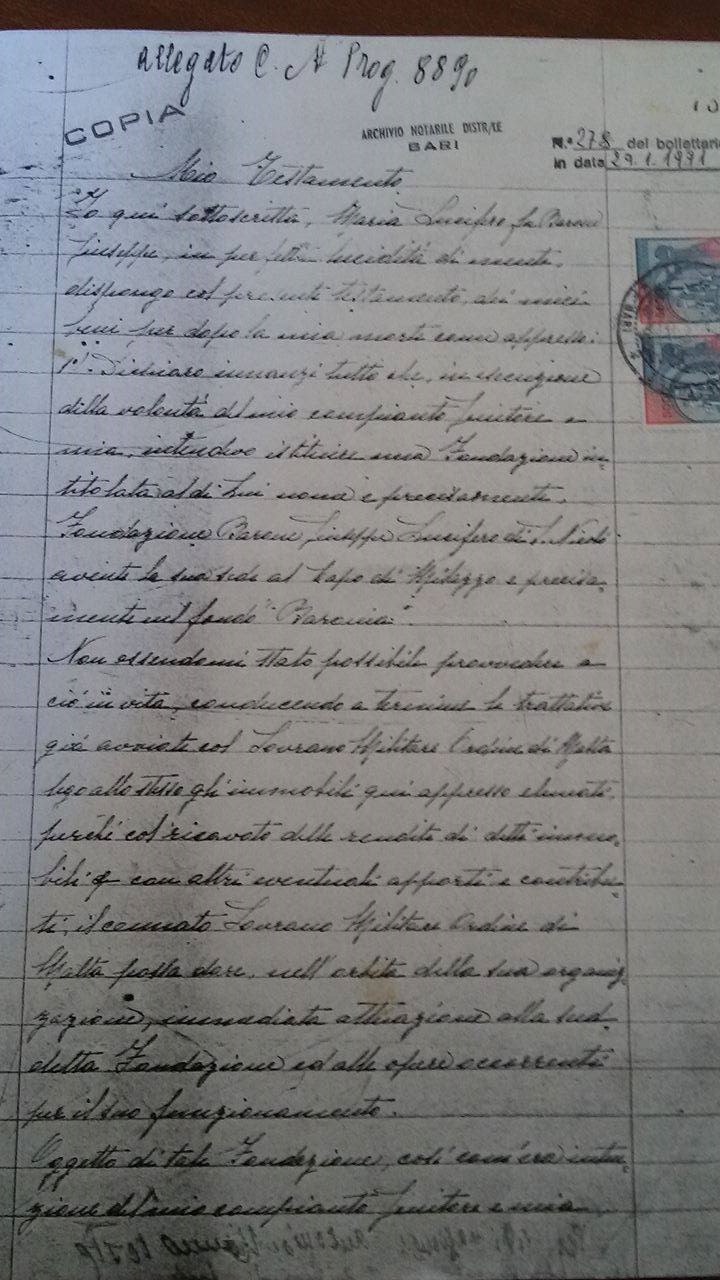 allegato C. N Prog. 8890
COPIA
ARCHIVIO NOTARILE DISTR/LE
BARI
N.° 278 del bollettario
in data 29.1.1991
Mio Testamento
Io qui sottoscritta, Maria Lucifero fu Barone
Giuseppe, in perfetta lucidità di mente,
dispongo col presente testamento, dei miei
beni per dopo la mia morte come appresso:
1°. Dichiaro innanzi tutto che, in esecuzione
della volontà del mio compianto genitore e
mia, intendevo istituire una Fondazione in-
titolata al di Lui nome e precisamente,
Fondazione Barone Giuseppe Lucifero di S. Nicolò
avente la sua sede al Capo di Milazzo e precisa-
mente nel fondo "Baronia".
Non essendomi stato possibile provvedere a
ciò in vita, conducendo a termine le trattative
già avviate col Sovrano Militare Ordine di Malta
lego allo stesso gli immobili qui appresso elencati,
perché col ricavato delle rendite di detti immo-
bili e con altri eventuali apporti e contribu-
ti, il cennato Sovrano Militare Ordine di
Malta possa dare, nell'orbita della sua organiz-
zazione, immediata attuazione alla sud-
detta Fondazione ed alle opere occorrenti
per il suo funzionamento.
Oggetto di tale Fondazione, così com'era inten-
zione del mio compianto genitore e mia